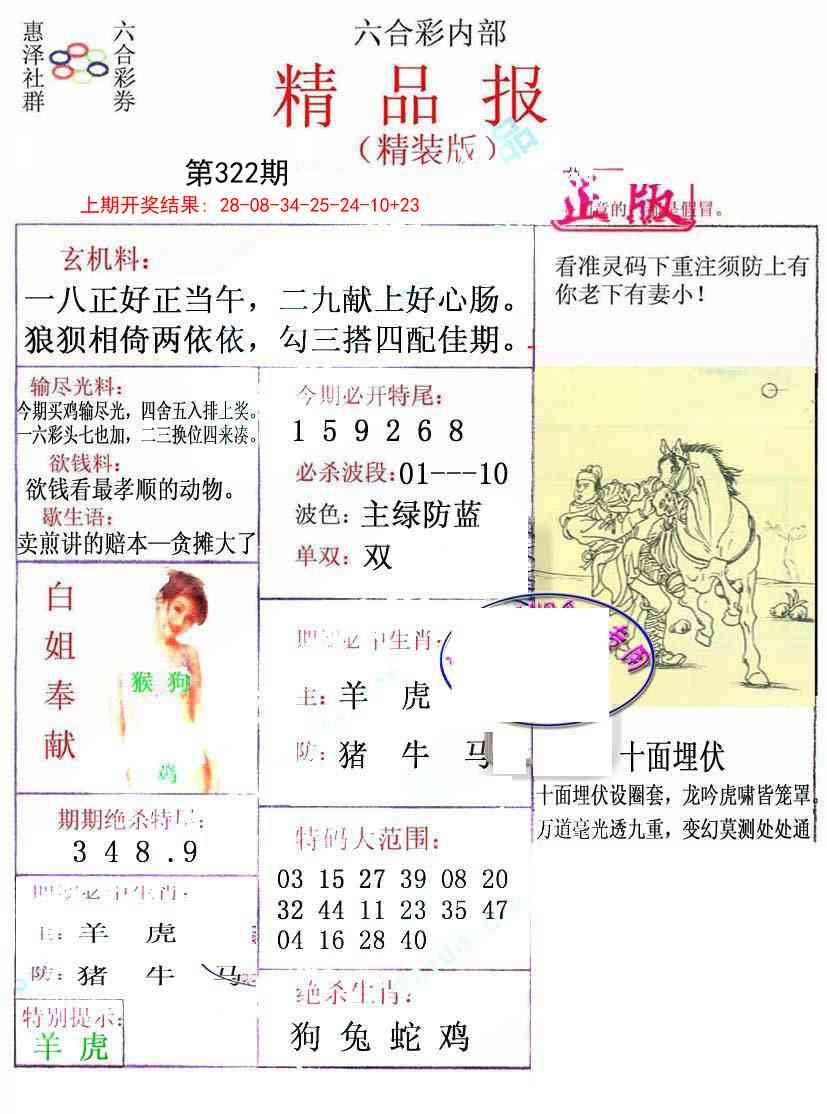 惠泽社群
六合彩券
六合彩内部
精品报
（精装版）
第322期
上期开奖结果: 28-08-34-25-24-10+23
正版
的
假冒。
玄机料：
一八正好正当午，二九献上好心肠。
狼狈相倚两依依，勾三搭四配佳期。
看准灵码下重注须防上有
你老下有妻小！
输尽光料：
今期买鸡输尽光，四舍五入排上奖。
一六彩头七也加，二三换位四来凑。
欲钱料：
欲钱看最孝顺的动物。
歇生语：
卖煎讲的赔本—贪摊大了
今期必开特尾：
1 5 9 2 6 8
必杀波段：01---10
波色：主绿防蓝
单双：双
白姐奉献
猴 狗
鸡
期期必中生肖：
主：羊 虎
防：猪 牛 马
期期绝杀特尾：
3 4 8 .9
特码大范围：
03 15 27 39 08 20
32 44 11 23 35 47
04 16 28 40
期期必中生肖：
主：羊 虎
防：猪 牛 马
特别提示：
羊 虎
绝杀生肖：
狗 兔 蛇 鸡
十面埋伏
十面埋伏设圈套，龙吟虎啸皆笼罩
万道毫光透九重，变幻莫测处处通